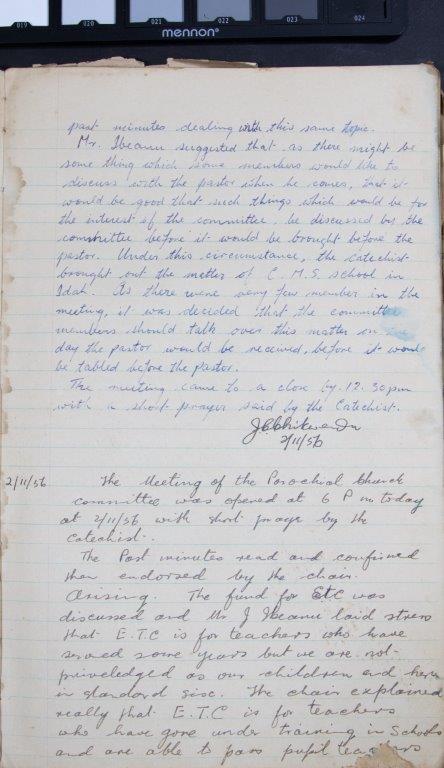 019 020 021 022 023 024
mennon
past minutes dealing with this same topic.
Mr. Ibeanu suggested that as there might be
some thing which some members would like to
discuss with the pastor when he comes, that it
would be good that such things which would be for
the interest of the committee, be discussed by the
committee before it would be brought before the
pastor. Under this circumstance, the catechist
brought out the matter of C.M.S. school in
Idah. As there were very few member in the
meeting, it was decided that the committee
members should talk over this matter on
day the pastor would be received, before it would
be tabled before the pastor.
The meeting came to a close by 12.30pm
with a short prayer said by the Catechist.
2/11/56
2/11/56 The Meeting of the Parochial Church
committee was opened at 6 P m today
at 2/11/56 with short praye by the
catechist.
The Past minutes read and confirmed
then endorsed by the chair.
Arising. The fund for ETC was
discussed and Mr J Ibeanu laid stress
that E.T.C is for teachers who have
served some years but we are not
priveledged as our children end here
in standard six. The chair explained
really that E.T.C is for teachers
who have gone under training in Schools
and are able to pass pupil teachers